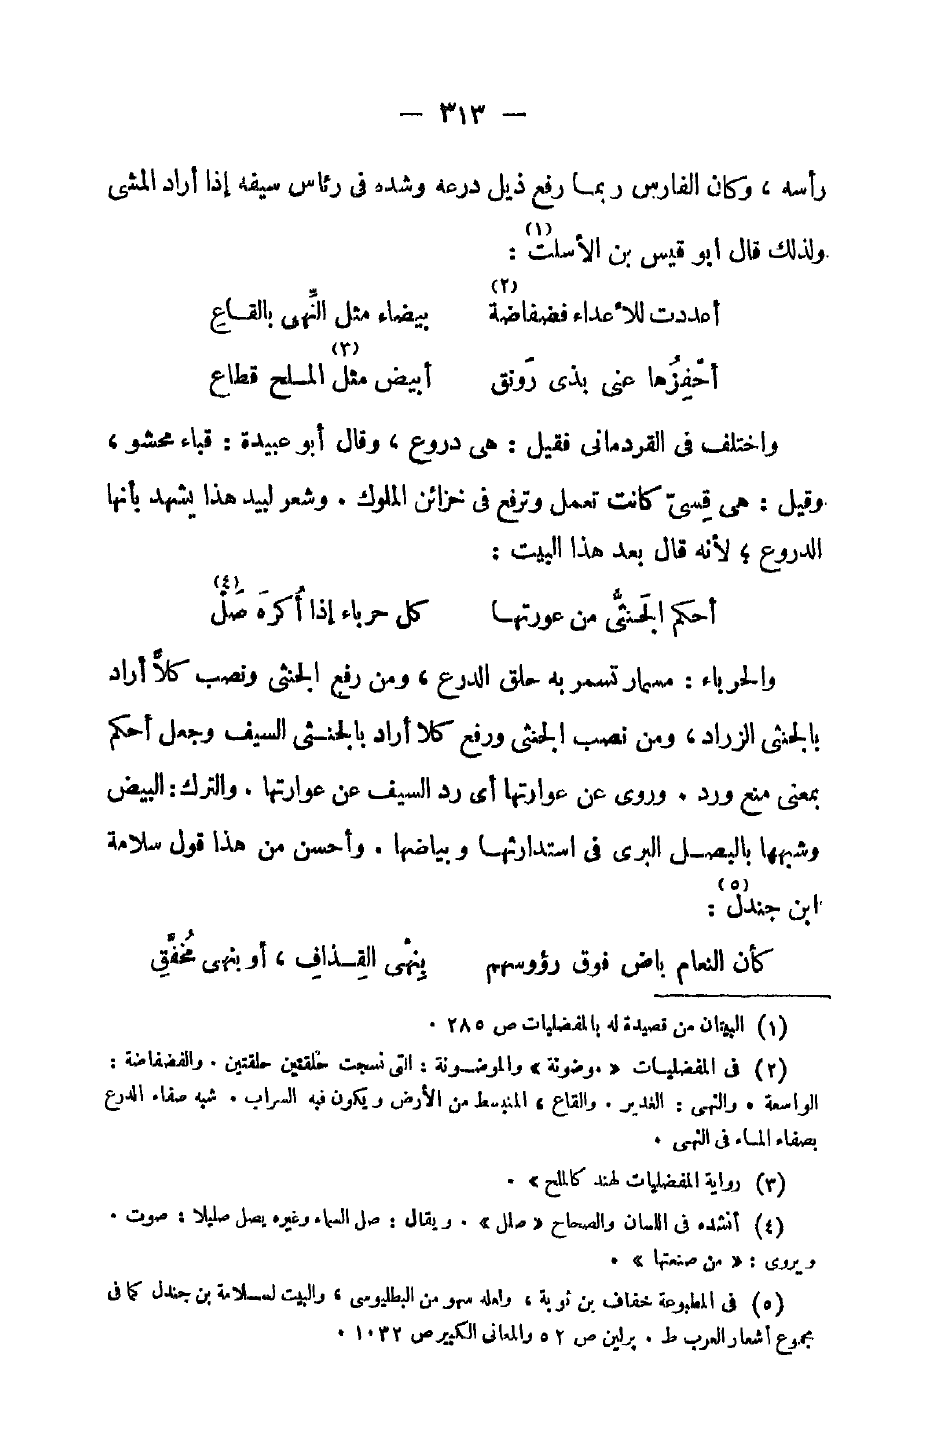 — ٣١٣ —
رأسه ، وكان الفارس ربمـا رفع ذيل درعه وشده فى رئاس سيفه إذا أراد المشى
ولذلك قال ابو قيس بن الأسلت (١) :
أعددت للأعداء فضفاضة (٢) بيضاء مثل النِّهى بالقـاع
أحْفِزُها عنى بذى رَونق أبيض مثل (٣) الملـح قطاع
واختلف فى القردمانى فقيل : هى دروع ، وقال أبو عبيدة : قباء محشو ،
وقيل : هى قِسىّ كانت تعمل وترفع فى خزائن الملوك . وشعر لبيد هذا يشهد بأنها
الدروع ؛ لأنه قال بعد هذا البيت :
أحكم الجَنثىُّ من عورتهـا كل حرباء إذا أُكرهَ صَلّْ (٤)
والحرباء : مسمار تسمر به حلق الدرع ، ومن رفع الجنثى ونصب كلاًّ أراد
بالجنثى الزراد ، ومن نصب الجنثى ورفع كلا أراد بالجنـثى السيف وجعل أحكم
بمعنى منع ورد . وروى عن عوارتها أى رد السيف عن عوارتها . والترك : البيض
وشبهها بالبصـل البرى فى استدارتهـا وبياضها . وأحسن من هذا قول سلامة
ابن جندل (٥) :
كأن النعام باض فوق رؤوسهم بِنِهْى القِـذافِ ، أو بنهى مُخَفَّقِ
(١) البيتان من قصيدة له بالمفضليات ص ٢٨٥ .
(٢) فى المفضليـات « موضونة » والموضـونة : التى نسجت حلقتين حلقتين . والفضفاضة :
الواسعة . والنهى : الغدير . والقاع ، المنبسط من الأرض ويكون فيه السراب . شبه صفاء الدرع
بصفاء المـاء فى النهى .
(٣) رواية المفضليات لهند كالملح » .
(٤) أنشده فى اللسان والصحاح « صلل » . ويقال : صل السماء وغيره يصل صليلا : صوت .
ويروى : « من صنعتها » .
(٥) فى المطبوعة خفاف بن ثوبة ، ولعله سهو من البطليوسى ، والبيت لسـلامة بن جندل كما فى
مجموع أشعار العرب ط . برلين ص ٥٢ والمعانى الكبير ص ١٠٣٢ .